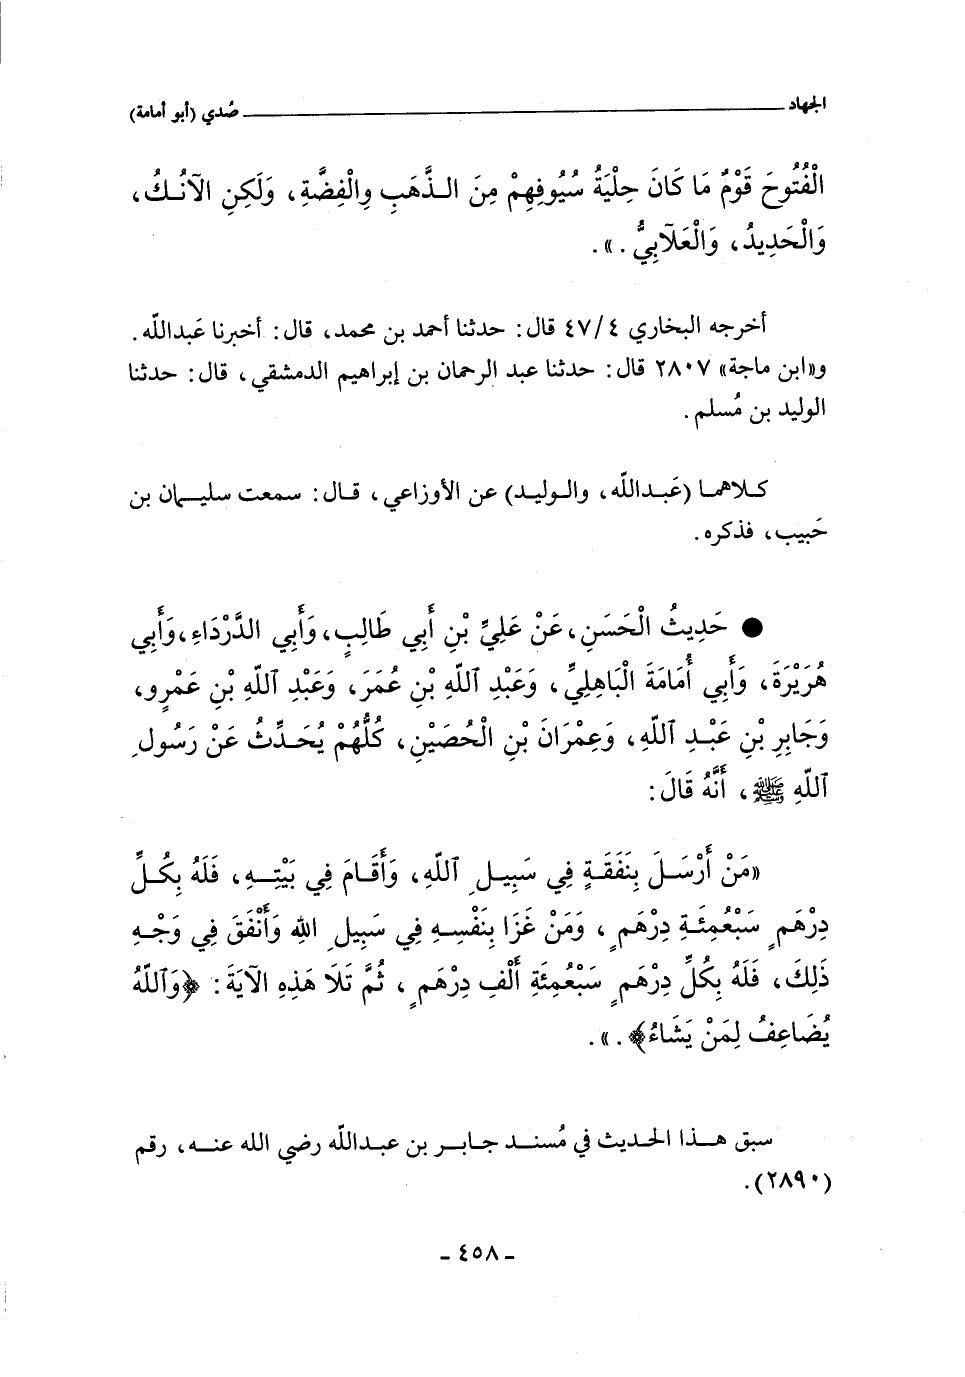 الجهاد ـــــــ صُدي (أبو أمامة)
الْفُتُوحَ قَوْمٌ مَا كَانَ حِلْيَةُ سُيُوفِهِمْ مِنَ الـذَّهَبِ وِالْفِضَّةِ، وَلَكِنِ الآنُـكُ،
وَالْحَدِيدُ، وَالْعَلَابِيُّ . ».
أخرجه البخاري ٤/ ٤٧ قال: حدثنا أحمد بن محمد، قال: أخبرنا عَبدالله.
و«ابن ماجة» ٢٨٠٧ قال: حدثنا عبد الرحمان بن إبراهيم الدمشقي، قال: حدثنا
الوليد بن مُسلم.
كـلاهما (عَبـدالله، والـوليـد) عن الأوزاعي، قـال: سمعت سليـمان بن
حَبيب، فذكره.
● حَدِيثُ الْحَسَنِ، عَنْ عَلِيِّ بْنِ أَبِي طَالِبٍ، وَأَبِي الدَّرْدَاءِ، وَأَبِي
هُرَيْرَةَ، وَأَبِي أُمَامَةَ الْبَاهِلِيِّ، وَعَبْدِ ٱللهِ بْنِ عُمَرَ، وَعَبْدِ ٱللهِ بْنِ عَمْرٍو،
وَجَابِرِ بْنِ عَبْـدِ ٱللهِ، وَعِمْرَانَ بْنِ الْحُصَيْنِ، كُلُّهُمْ يُحَـدِّثُ عَنْ رَسُولِ
ٱللهِ ﷺ، أَنَّهُ قَالَ:
«مَنْ أَرْسَـلَ بِنَفَقَـةٍ فِي سَبِيـلِ ٱللهِ، وَأَقَـامَ فِي بَيْتِـهِ، فَلَهُ بِكُـلِّ
دِرْهَمٍ سَبْعُمِئَـةِ دِرْهَمٍ، وَمَنْ غَزَا بِنَفْسِـهِ فِي سَبِيلِ اللهِ وَأَنْفَقَ فِي وَجْـهِ
ذَلِكَ، فَلَهُ بِكُلِّ دِرْهَمٍ سَبْعُمِئَةِ أَلْفِ دِرْهَمٍ، ثُمَّ تَلَا هَذِهِ الآيَةَ: ﴿وَٱللهُ
يُضَاعِفُ لِمَنْ يَشَاءُ﴾ . ».
سبق هـذا الحـديث في مُسنـد جـابـر بن عبـدالله رضي الله عنـه، رقم
(٢٨٩٠).
- ٤٥٨ -